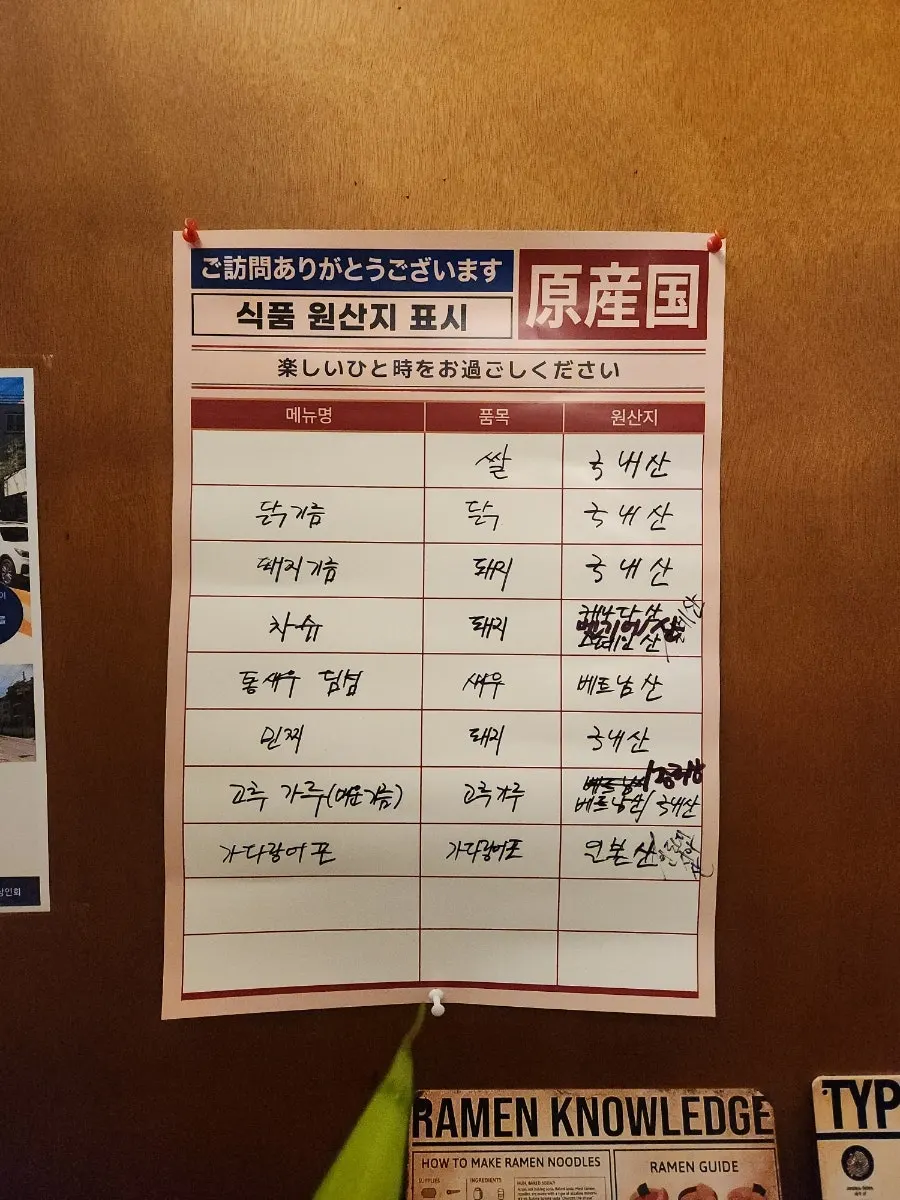 ご訪問ありがとうございます
식품 원산지 표시
原産国
楽しいひと時をお過ごしください
메뉴명 품목 원산지
쌀 국내산
닭기름 닭 국내산
돼지기름 돼지 국내산
차슈 돼지
통새우 딤섬 새우 베트남산
민찌 돼지 국내산
고추 가루(매운기름) 고추가루 베트남산/ 국내산
가다랑어포 가다랑어포 일본산
RAMEN KNOWLEDGE
HOW TO MAKE RAMEN NOODLES
RAMEN GUIDE
SUPPLIES
INGREDIENTS
TYP